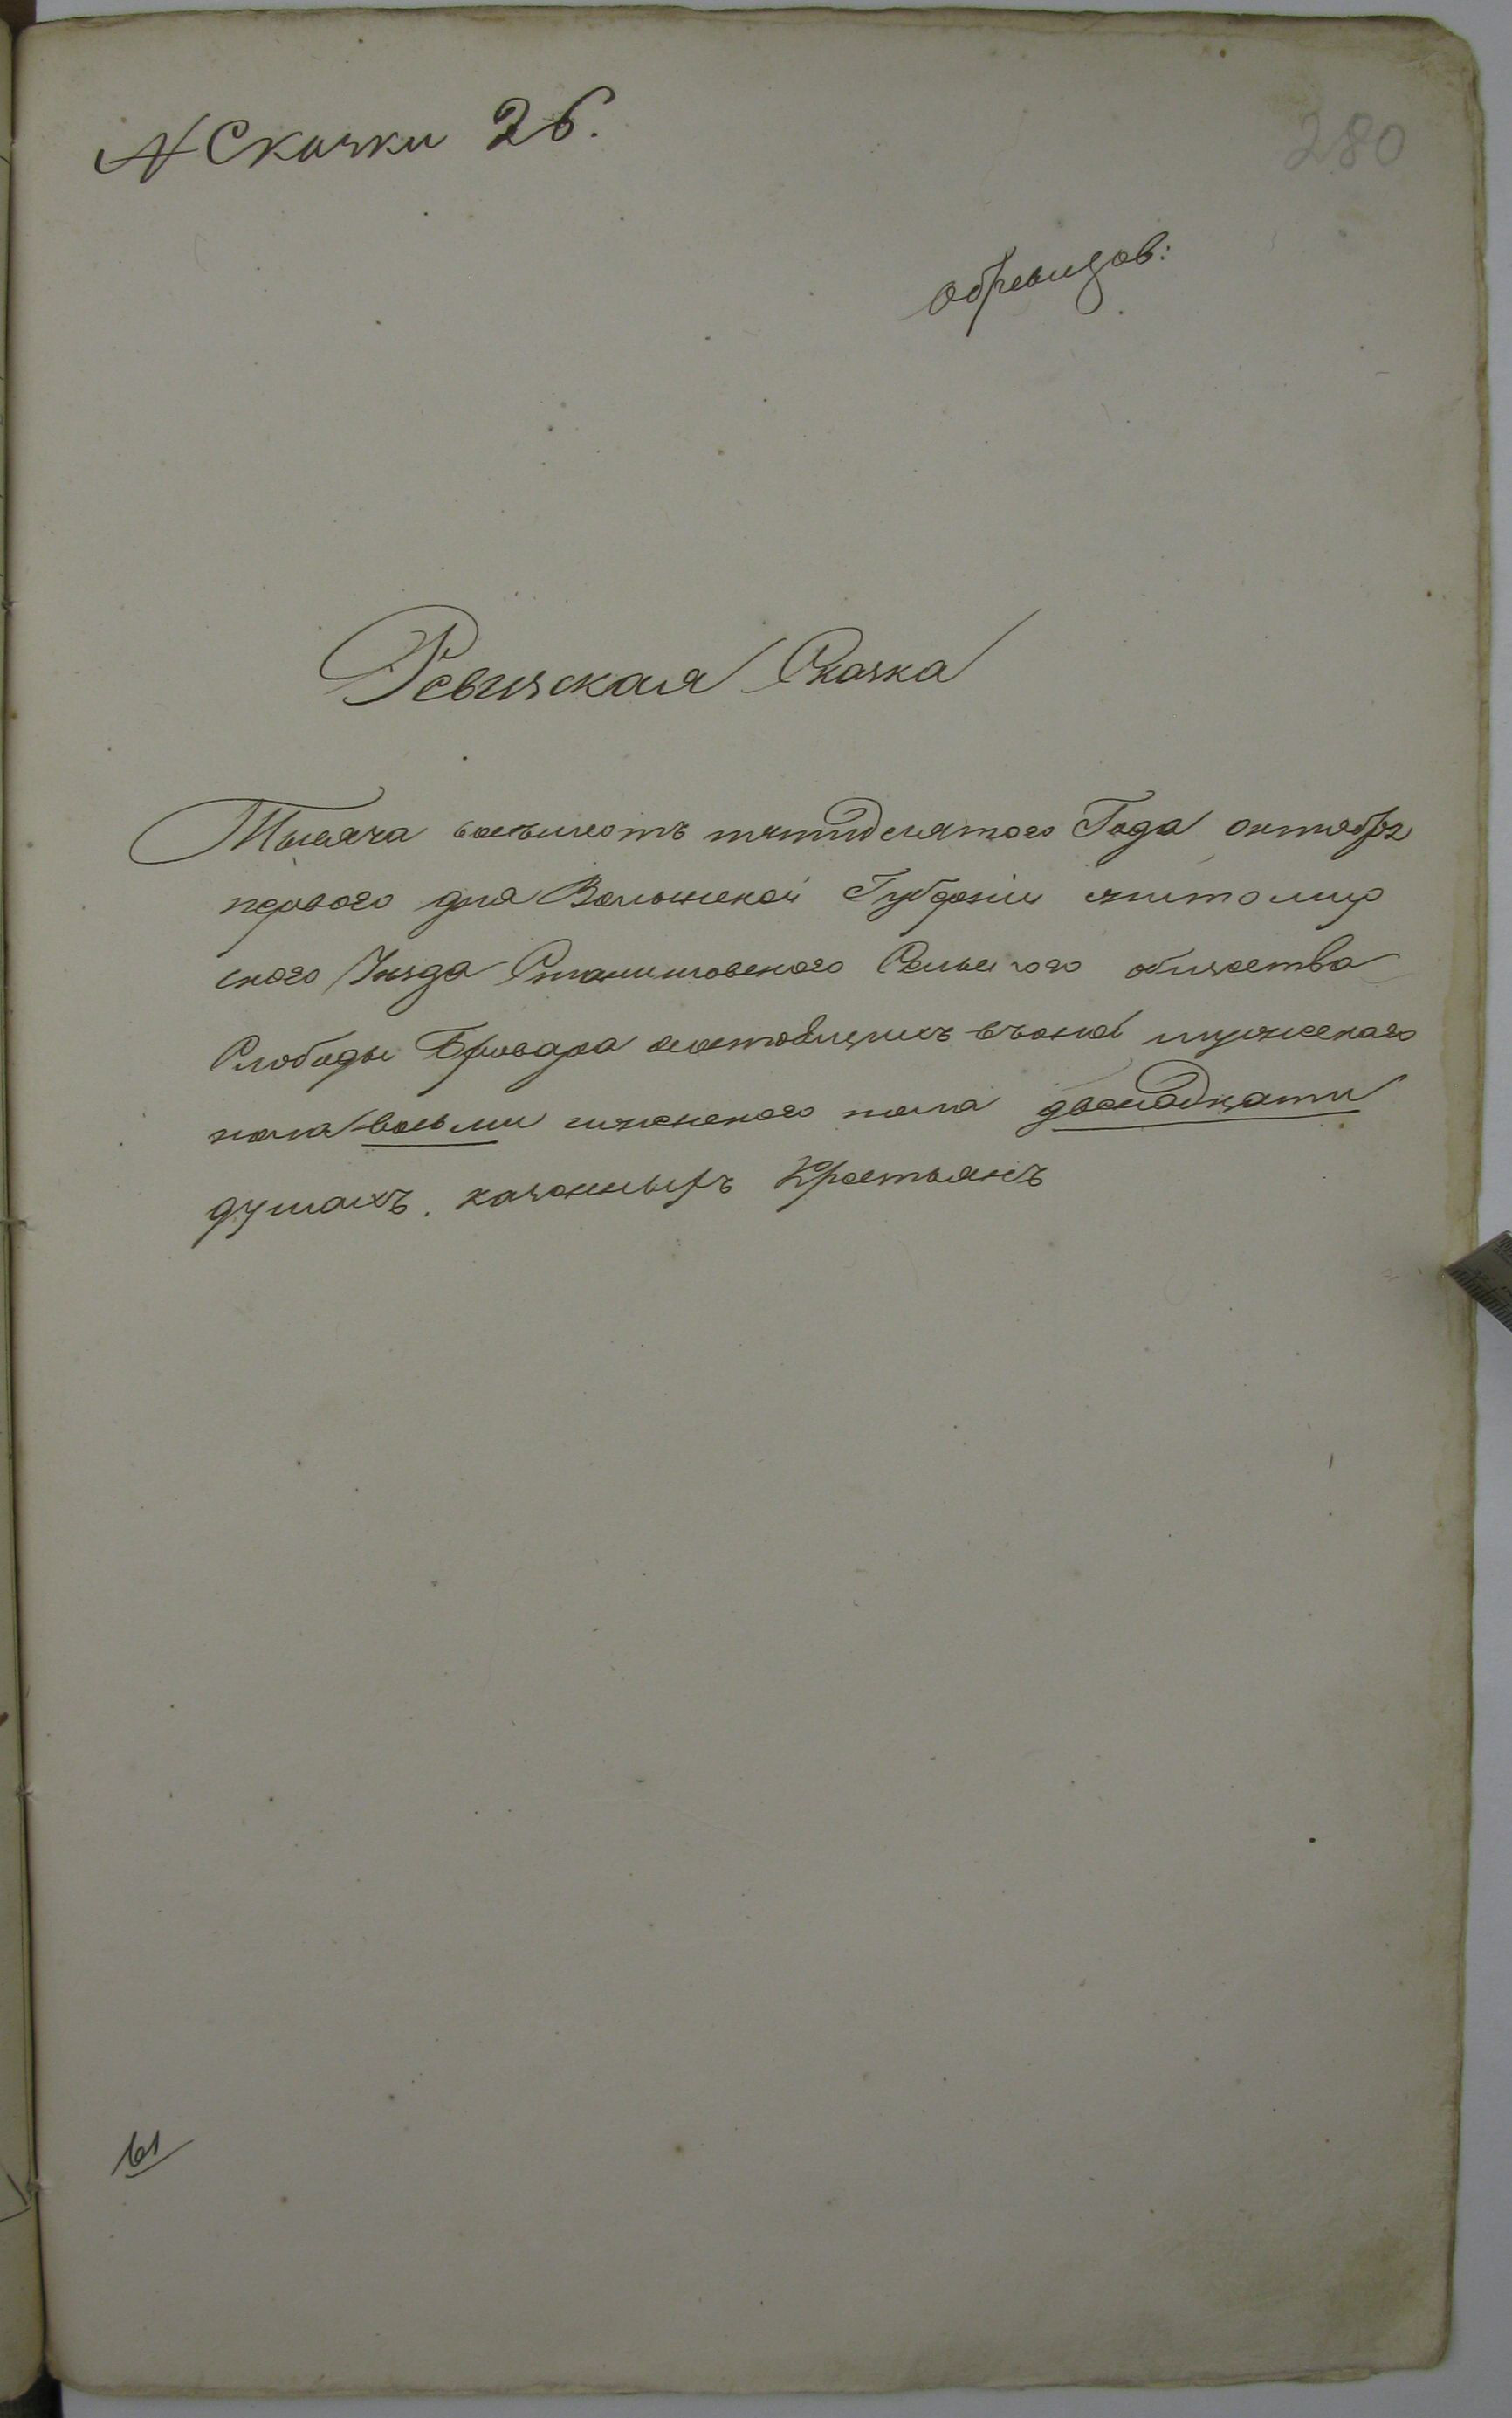 № Скаски 26.
280
обревизов:
Ревизская Сказка
Тысяча восемьсотъ пятидесятого Года октября
первого дня Волынской Губерніи житомир
ского Уезда Станишовского Сельского общества
Слободы Бровара состоящихъ въоной мужескаго
пола восьми иженского пола двенадцати
душахъ. казенныхъ Крестьянъ
61